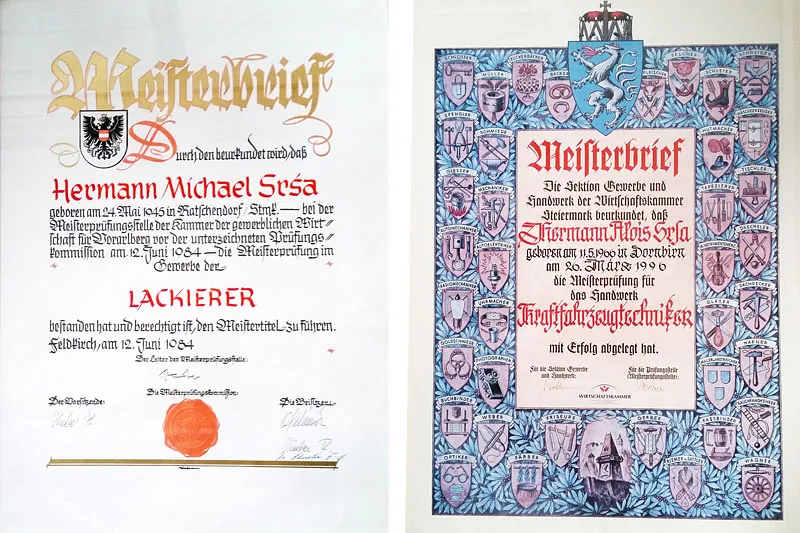 Meisterbrief
Durch den beurkundet wird, daß
Hermann Michael Srša
geboren am 24. Mai 1945 in Ratschendorf / Stmk. — bei der
Meisterprüfungsstelle der Kammer der gewerblichen Wirt=
schaft für Vorarlberg vor der unterzeichneten Prüfungs=
kommission am 12. Juni 1984 — die Meisterprüfung im
Gewerbe der
LACKIERER
bestanden hat und berechtigt ist, den Meistertitel zu führen.
Feldkirch, am 12. Juni 1984
Der Leiter der Meisterprüfungsstelle:
Die Meisterprüfungskommission:
Der Vorsitzende:
Die Beisitzer:
SCHLOSSER
MÜLLER
ZUCKERBÄCKER
BÄCKER
FLEISCHER
TISCHLER
SPENGLER
SCHMIEDE
HUTMACHER
GIESSER
MECHANIKER
TAPEZIERER
TISCHLER
AUTOMECHANIKER
AUTOELEKTRIKER
DRECHSLER
RADIOMECHANIKER
UHRMACHER
GLASER
DACHDECKER
GOLDSCHMIEDE
PHOTOGRAPHEN
HAFNER
BUCHBINDER
WEBER
FRISEURE
GERBER
FASSBINDER
RAUCHFANGKEHRER
OPTIKER
FÄRBER
RIEMER u. SATTLER
WAGNER
Meisterbrief
Die Sektion Gewerbe und
Handwerk der Wirtschaftskammer
Steiermark beurkundet, daß
Hermann Alois Srša
geboren am 11.5.1966 in Dornbirn
am 26. März 1996
die Meisterprüfung für
das Handwerk
Kraftfahrzeugtechniker
mit Erfolg abgelegt hat.
Für die Sektion Gewerbe
und Handwerk:
Für die Prüfungsstelle
(Meisterprüfungsstelle):
WIRTSCHAFTSKAMMER